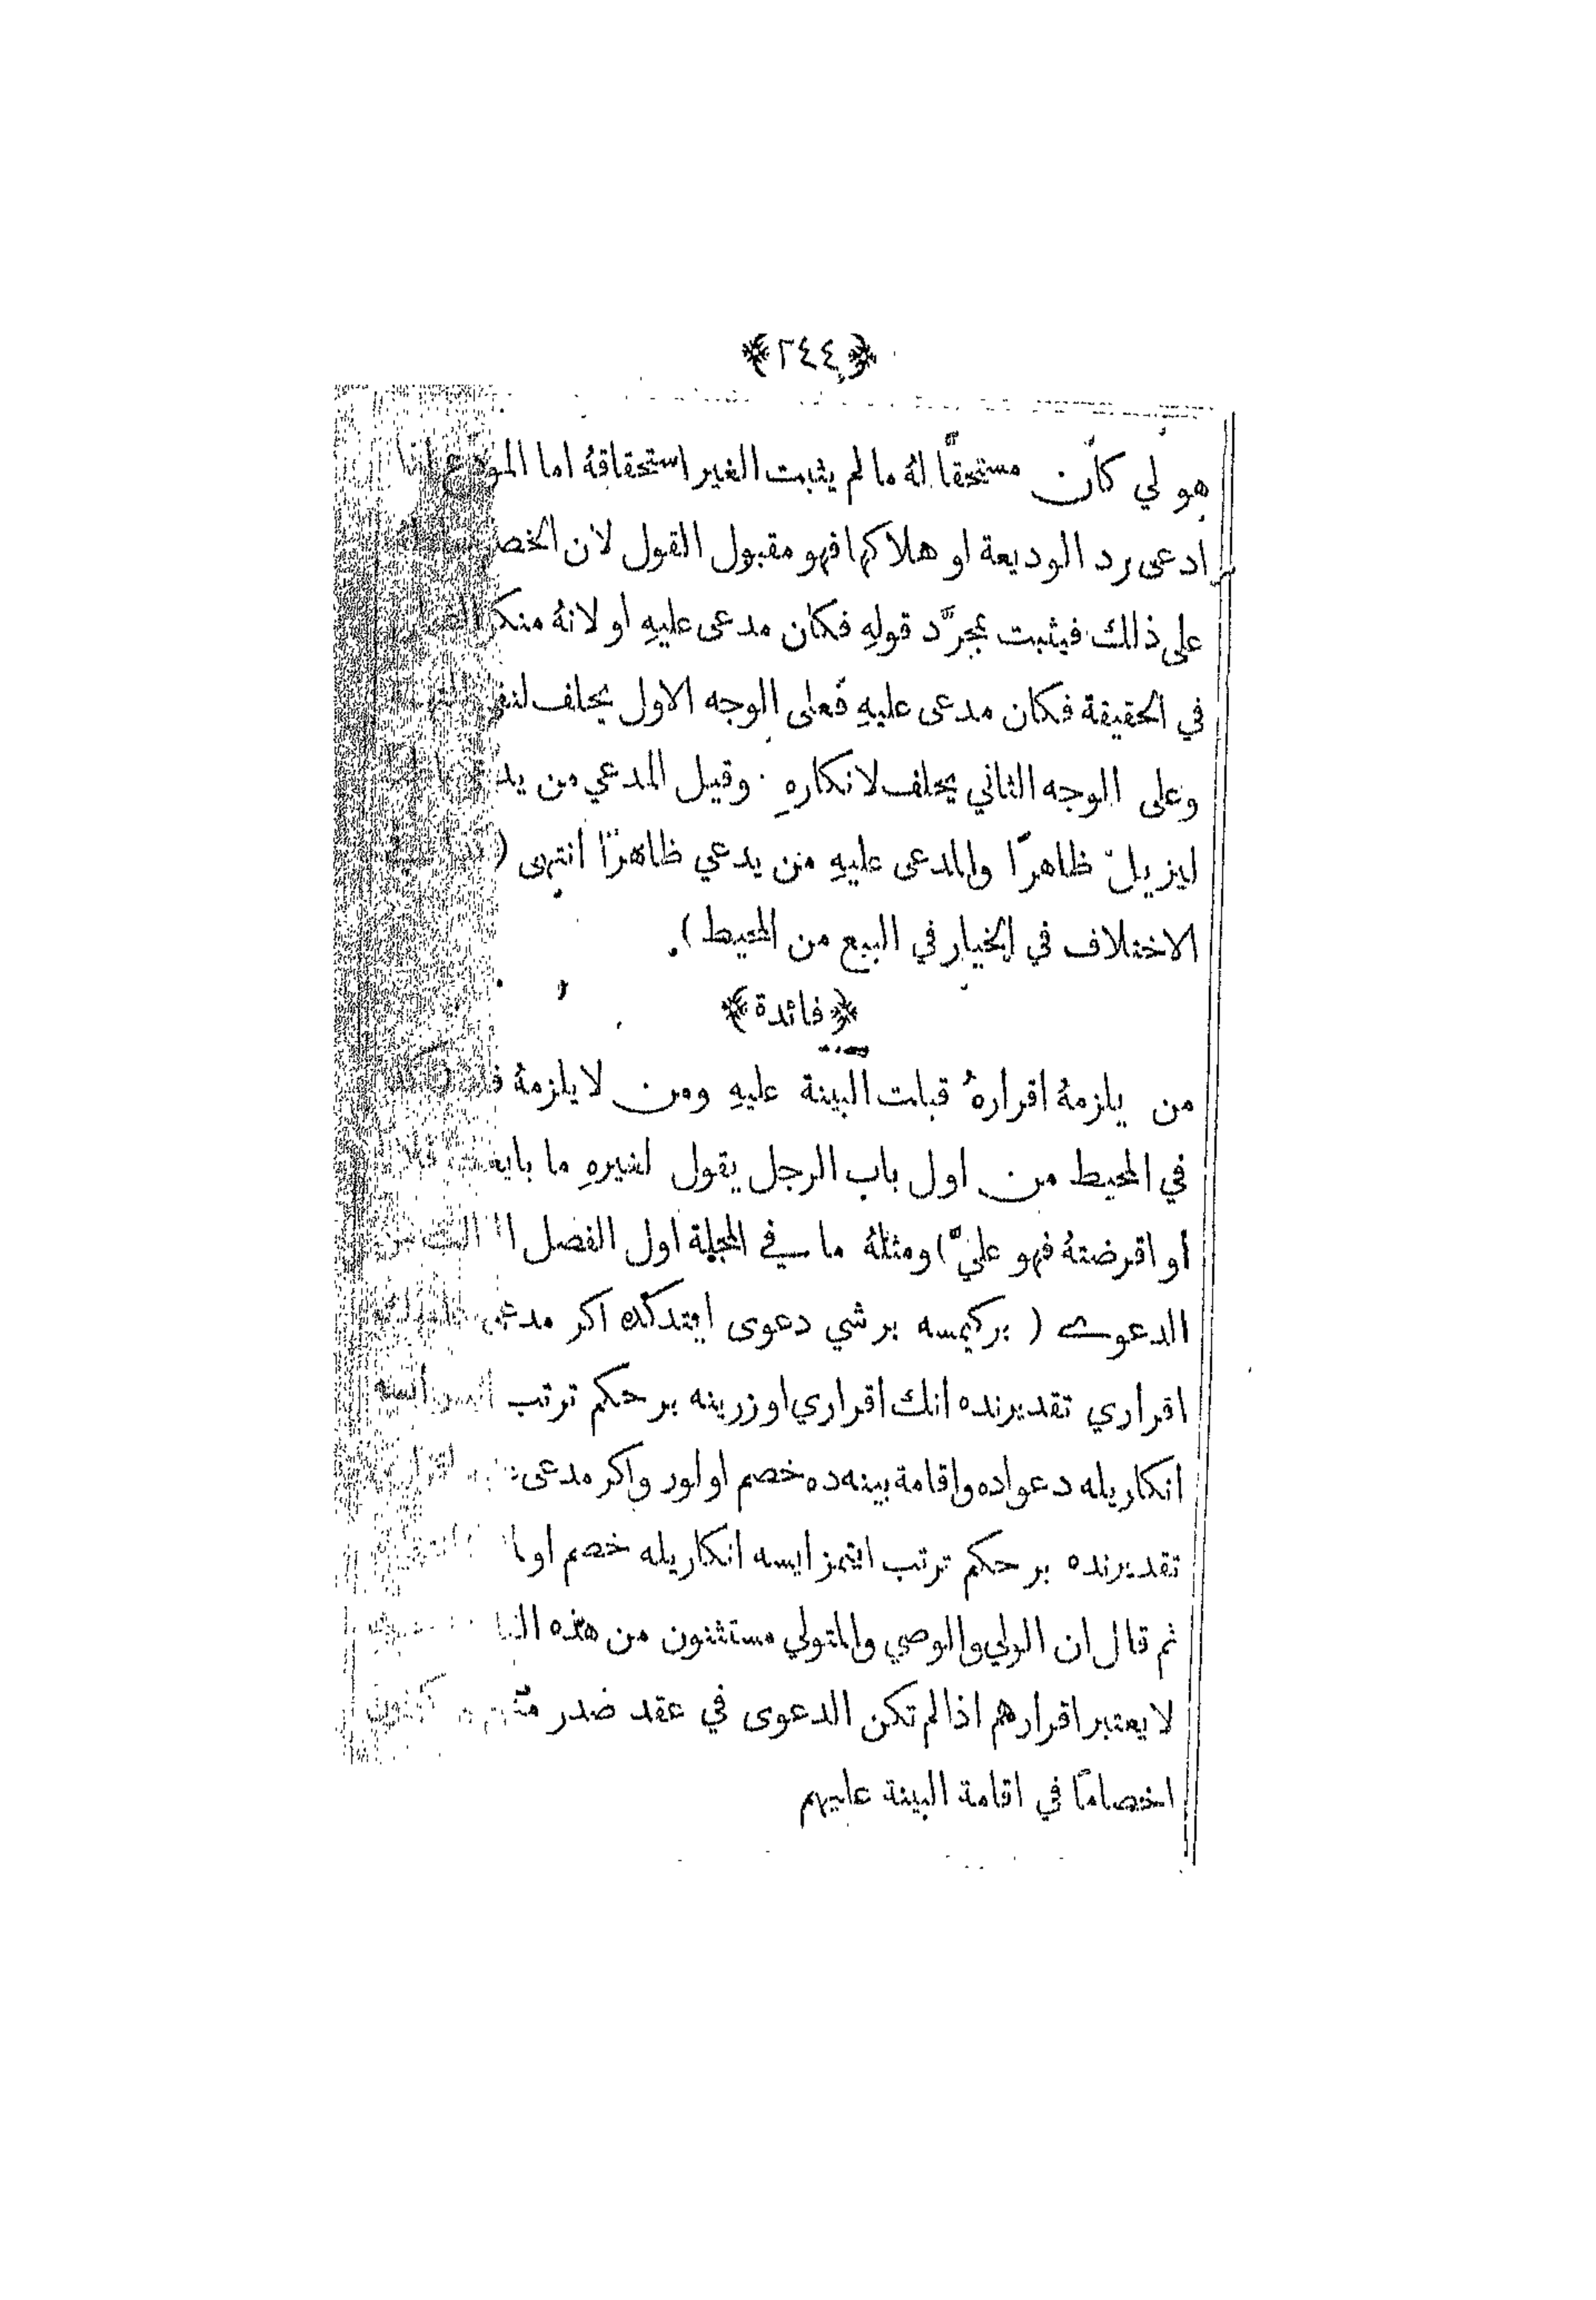 ﴿٢٤٤﴾
هو لي كان مستحقًّا لهُ ما لم يثبت الغير استحقاقهُ اما المودَع اذا
ادعى رد الوديعة او هلاكها فهو مقبول القول لان
على ذلك فيثبت بمجرَّد قولهِ فكان مدعى عليهِ او لانهُ منكر
في الحقيقة فكان مدعى عليهِ فعلى الوجه الاول يحلف لنفي
وعلى الوجه الثاني يحلف لانكارهِ وقيل المدعي من
ليزيل ظاهرًا والمدعى عليهِ من يدعي ظاهرًا انتهى (
الاختلاف في الخيار في البيع من المحيط).
﴿فائدة﴾
من يلزمهُ اقرارهُ قبلت البينة عليهِ ومن لا يلزمهُ
في المحيط من اول باب الرجل يقول لغيرهِ ما بايعت
او اقرضتهُ فهو عليَّ) ومثلهُ ما في المجلة اول الفصل
الدعوى ( بر كيمسه بر شي دعوى ايتدكده اكر مدعى
اقراري تقديرنده انك اقراري اوزرينه بر حكم ترتب
انكاريله دعواده واقامة بينه ده خصم اولور واكر مدعى
تقديرنده بر حكم ترتب ايتمز ايسه انكاريله خصم
ثم قال ان الولي والوصي والمتولي مستثنون من هذه
لا يعتبر اقرارهم اذا لم تكن الدعوى في عقد صدر
اخصامًا في اقامة البينة عليهم